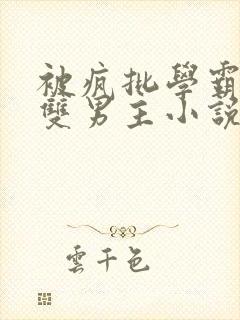 被疯批學霸
雙男主小說
雲千色